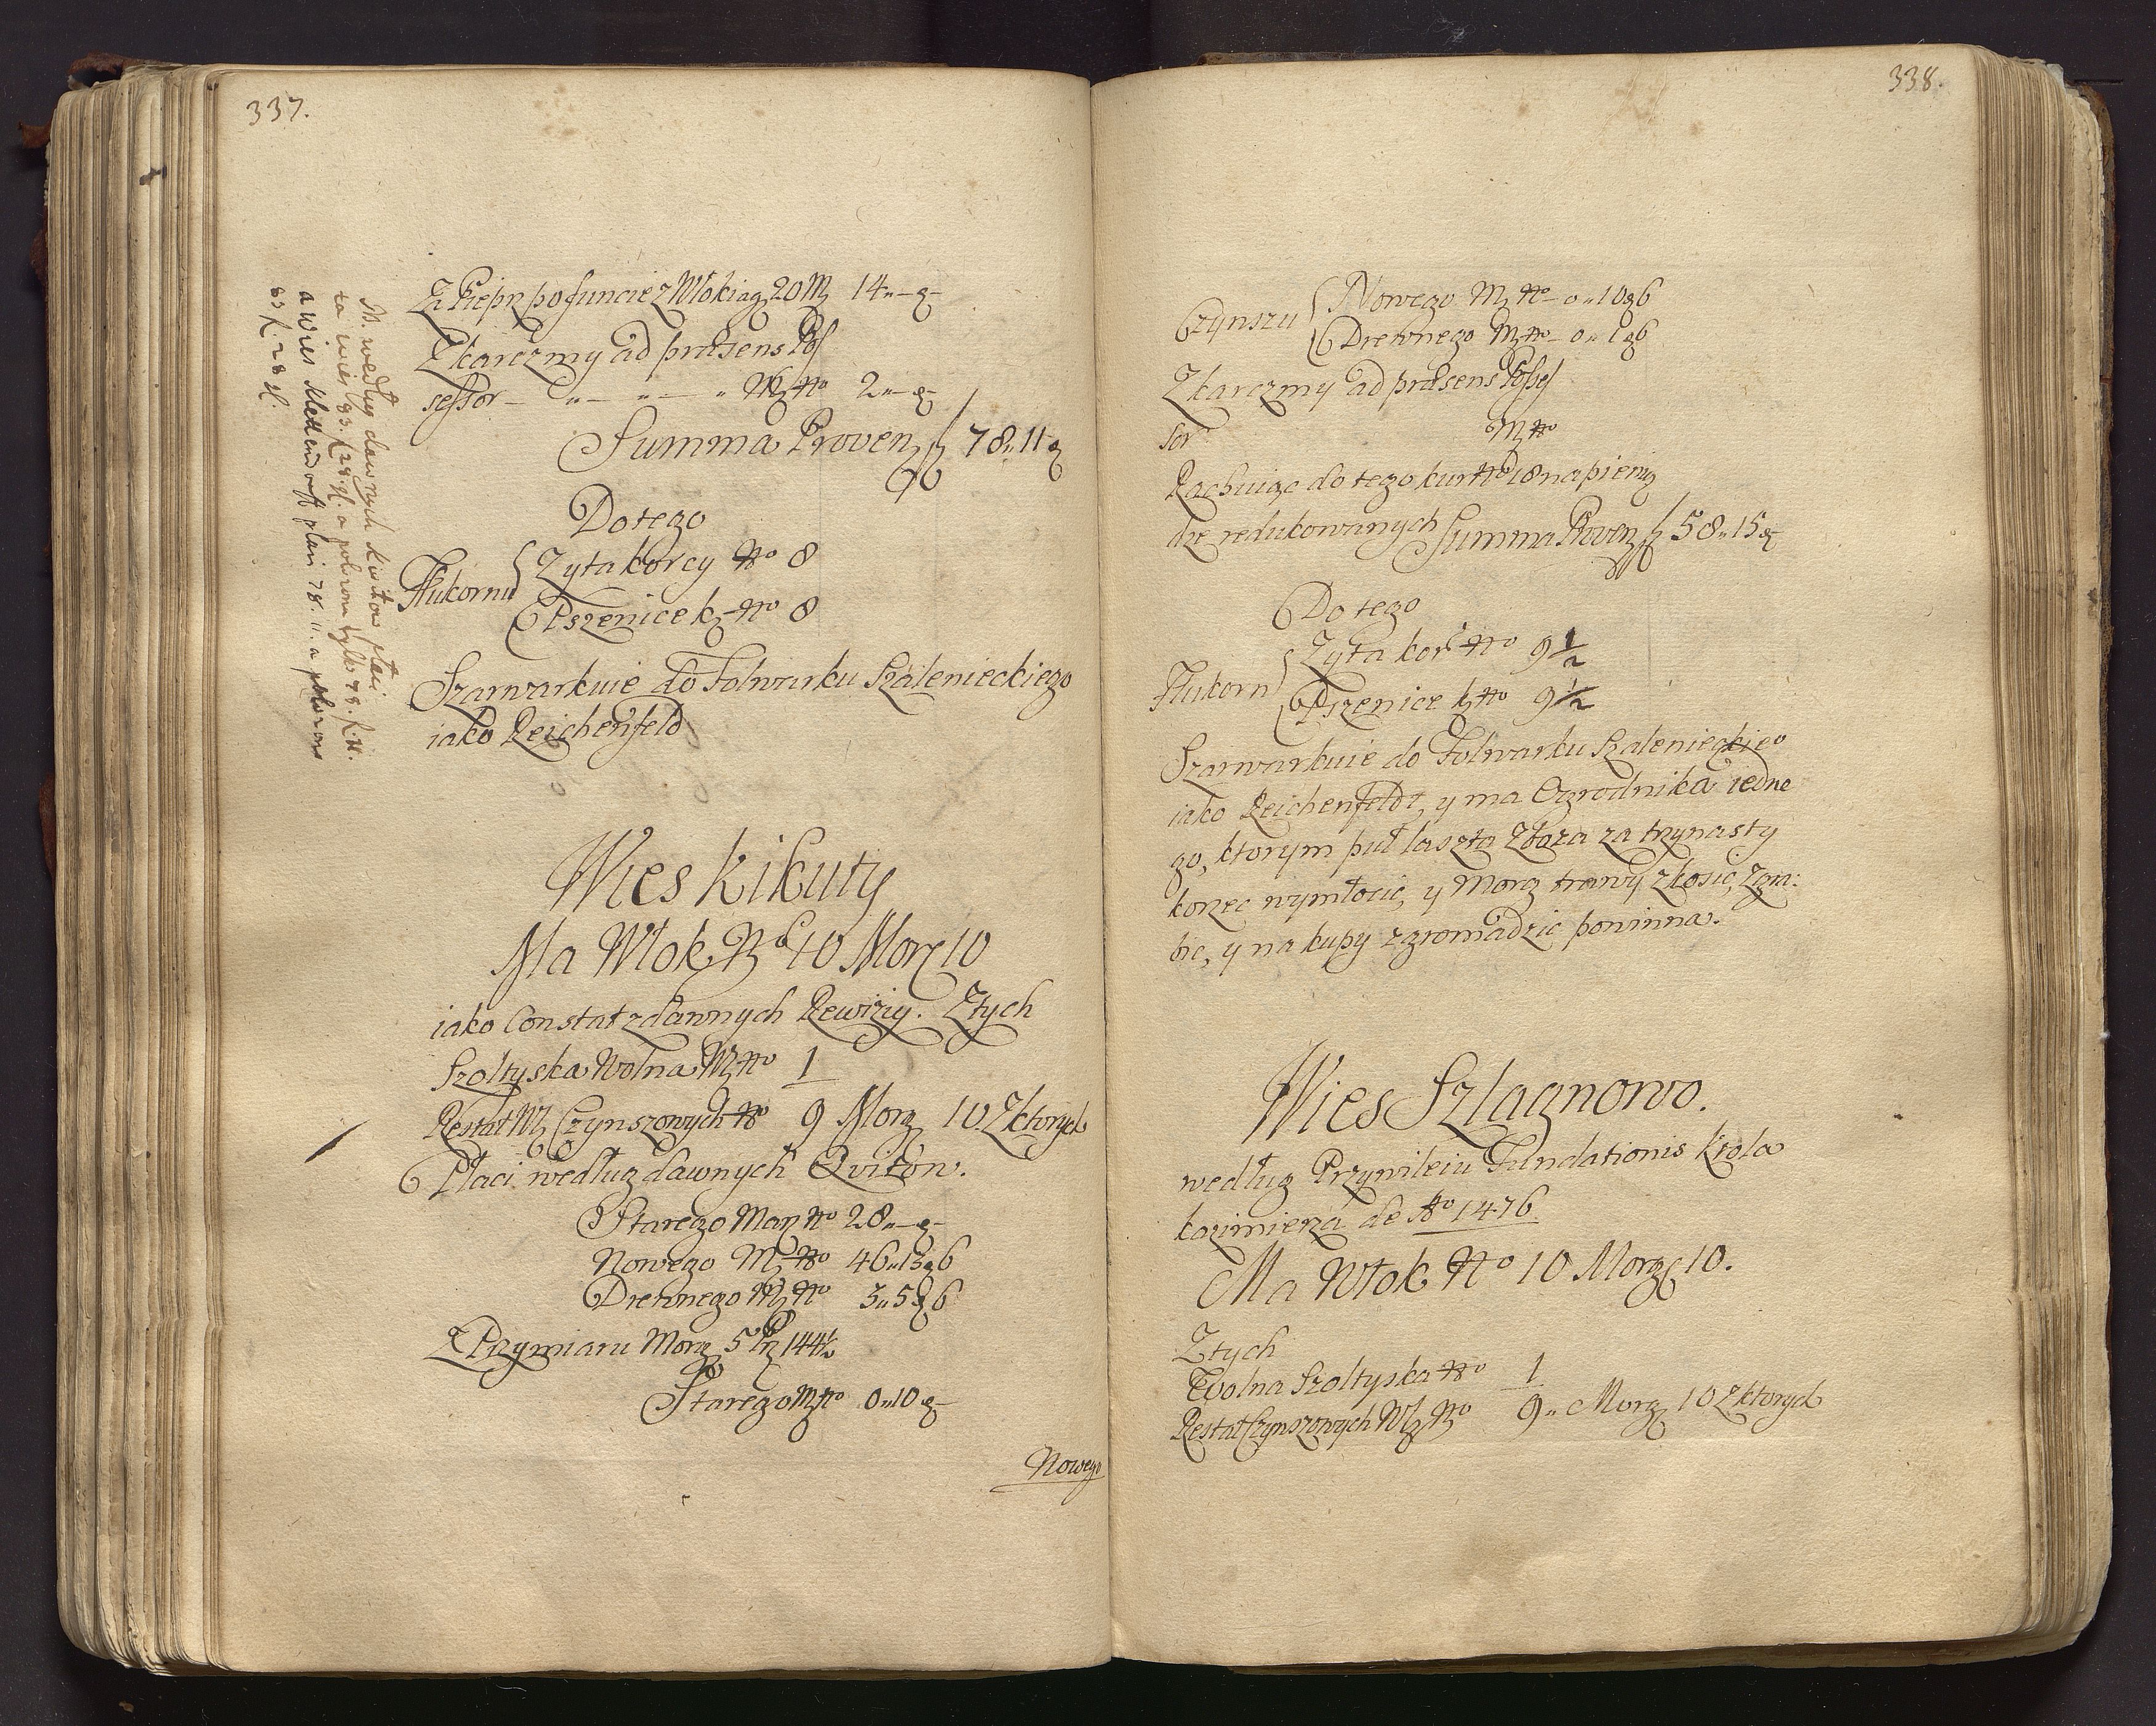 337.
Za Pieprz po funcie z Włoki ag 20 M 14 „ – g –
Z karczmy ad præsens Pos
sessor – „ – „ – „ M No 2 „ – g –
Summa Proven f 78 „ 11 g
Do tego
Hukornu Zyta korcy No 8
Pszenice k No 8
Szarwarkuie do Folwarku Szalenieckiego
iako Reichenfeld
NB. według dawnych kwitow płaci
ta wies 93. f 28 gl. a poborow tylko 78. f. 11.
a wies Klettendorff płaci 78. 11. a poborow
83 f 28 gl.
Wies Kikuty
Ma Włok No 10 Morg 10
iako Constat z dawnych Rewiziy. Z tych
Szoltyska Wolna W No 1
Restat Wł Czynszowych No 9 Morg 10 Z ktorych
Płaci według dawnych Qvitow.
Starego Marz No 28 „ – g –
Nowego M No 46 „ 13 g 6
Drewnego M No 3 „ 5 g 6
Z Przymiaru Morg 5 Pr 144½
Starego M No 0 „ 10 g –
Nowego
338.
Czynszu Nowego M No – 0 „ 10 g 6
Drewnego M No – 0 „ 1 g 6
Z karczmy ad præsens Posses
sor M No
Rachuiąc do tego kur No 18 na pienią
dze redukowanych Summa Proven f 58 „ 15 g
Do tego
Hukorn Zyta kor No 9 ½
Pszenice k No 9 ½
Szarwarkuie do Folwarku Szalenieckiego
iako Reichenfeldt, y ma Ogrodnika iedne
go, ktorym puł laszta Zboza za trzynasty
korzec wymłocic, y Morg trawy zkosic, Zgra:
bic, y na kupy zgromadzic powinna.
Wies Szlagnowo.
według Przywileiu Fundationis Krola
Kazimierza de Ao 1476
Ma Włok No 10 Morg 10.
Z tych
Wolna Szoltyska No 1
Restat Czynszowych Wł No 9 „ Morg 10 Z ktorych